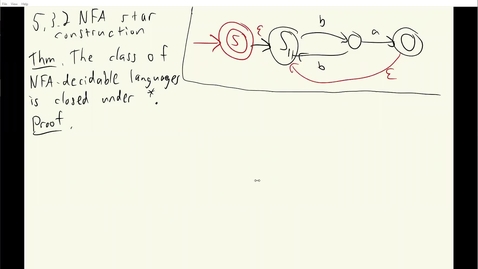 5.3.2 NFA star
construction
Thm. The class of
NFA-decidable languages
is closed under *.
Proof.
S
ε
S₁
b
b
a
ε